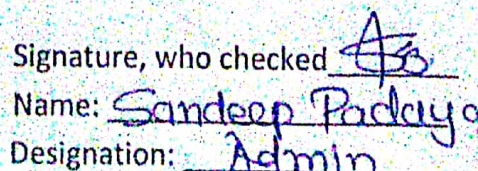 Signature, who checked
Name: Sandeep
Designation: Admin